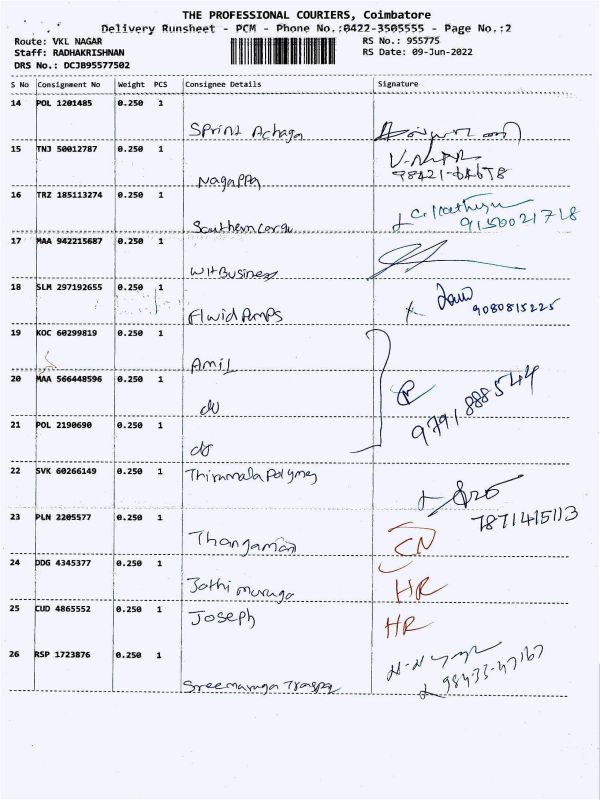 THE PROFESSIONAL COURIERS, Coimbatore
Delivery Runsheet - PCM - Phone No.:0422-3505555 - Page No.:2
Route: VKL NAGAR
Staff: RADHAKRISHNAN
DRS No.: DCJB95577502
RS No.: 955775
RS Date: 09-Jun-2022
S No Consignment No Weight PCS Consignee Details Signature
14 POL 1201485 0.250 1
Sprint
15 TNJ 50012787 0.250 1
Nagappa
16 TRZ 185113274 0.250 1
Southern Cargu
9150021718
17 MAA 942215687 0.250 1
WH Business
18 SLM 297192655 0.250 1
Fluid Pumps
9080815225
19 KOC 60299819 0.250 1
Amil
20 MAA 566448596 0.250 1
do
9791888544
21 POL 2190690 0.250 1
do
22 SVK 60266149 0.250 1
Thirumala Polymes
7871415113
23 PLN 2205577 0.250 1
Thangaman CN
24 DDG 4345377 0.250 1
Jothi muruga HR
25 CUD 4865552 0.250 1
Joseph HR
26 RSP 1723876 0.250 1
98433-47167
Sreemuruga